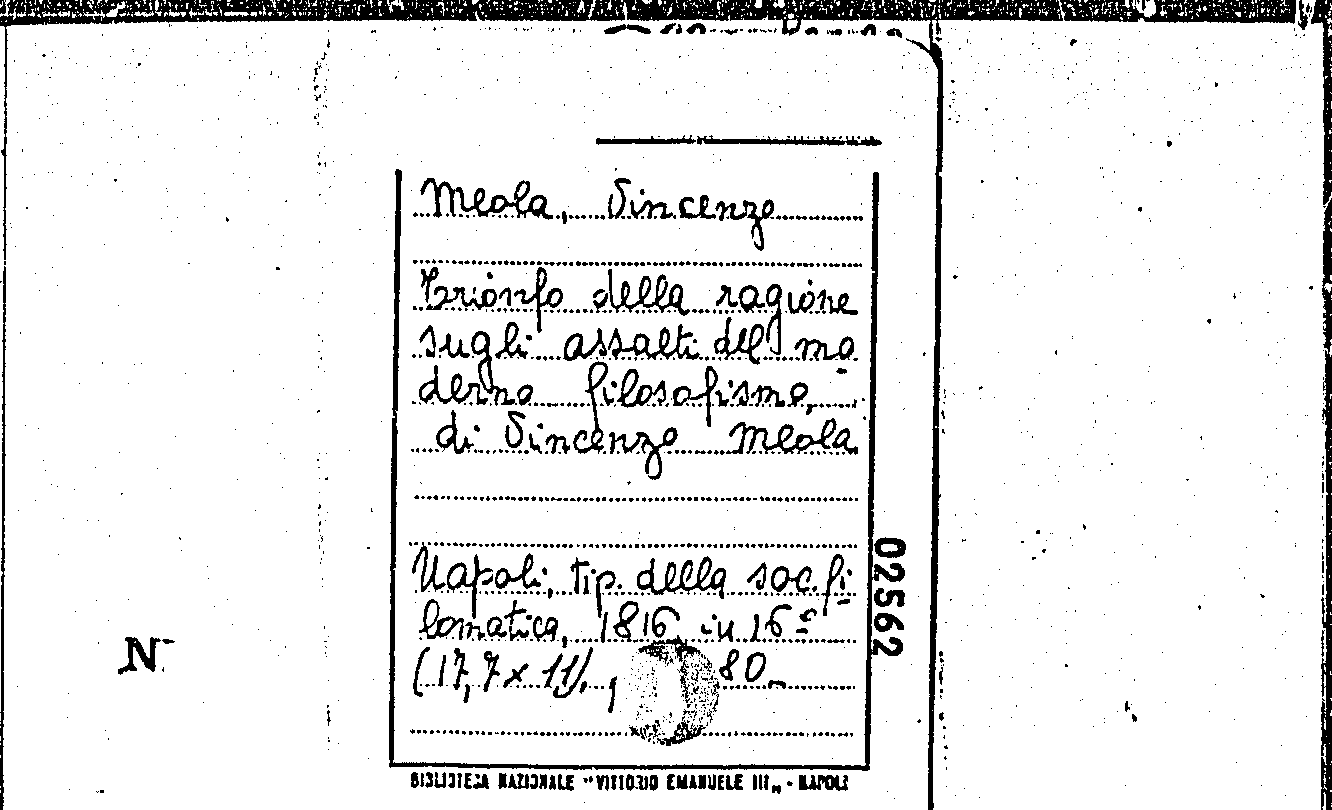 Meola, Vincenzo
Trionfo della ragione
sugli assalti del mo
derno filosofismo,
di Vincenzo Meola
Napoli, tip. della soc. fi
lomatica, 1816, in 16º
(17,7 x 11), 80
02562
N
BIBLIOTECA NAZIONALE "VITTORIO EMANUELE III„ - NAPOLI